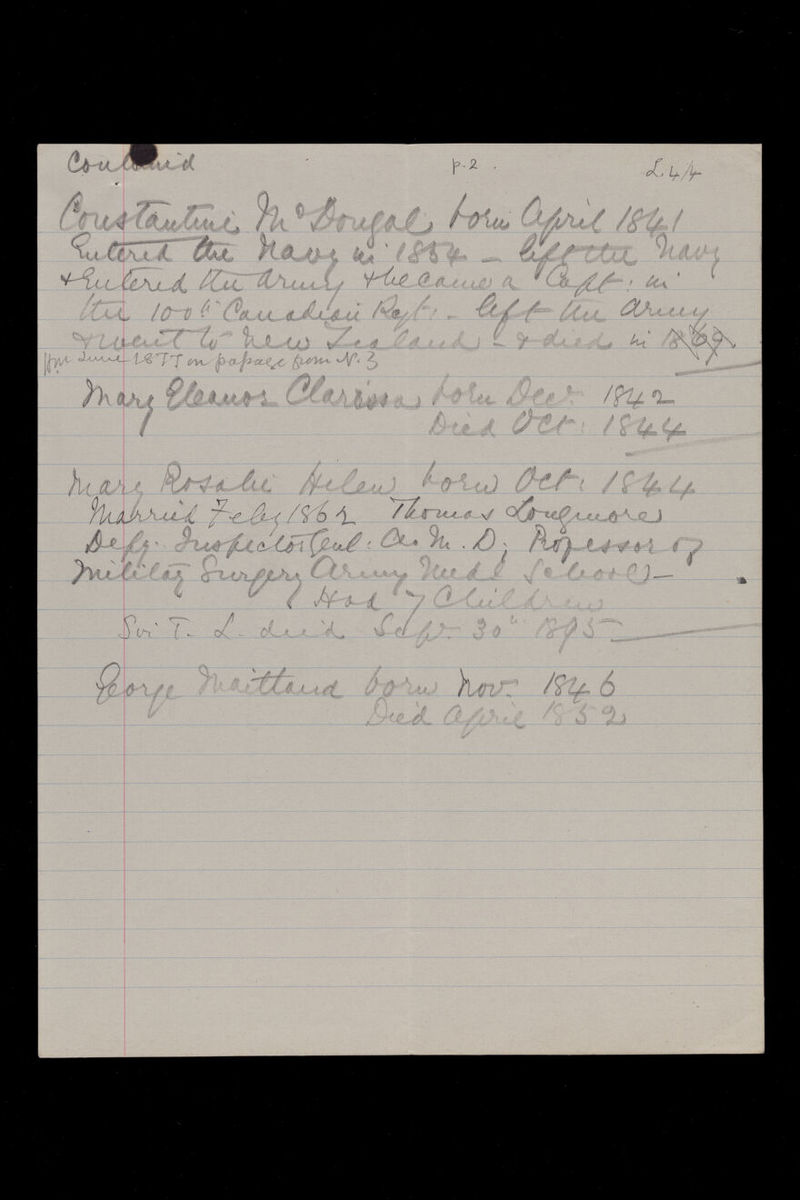 Continud p.2. L.4/4
Constantine McDougal born April 1841
Entered the Navy in 1854 - left the Navy
& Entered the Army & became a Capt: in
the 100th Canadian Regt: - left the Army
& went to New Zealand - & died in 1869
June 1877 on passage from N.Z
Mary Eleanor Clarissa born Decr. 1842
Died Oct: 1844
Mary Rosalie Helen born Oct: 1844
Married Feby 1862 Thomas Longmore
Depy. Inspector Genl: A. M. D; Professor of
Military Surgery Army Medl School -
Had 7 Children
Sir T. L. died Sepr. 30th 1895
George Maitland born Nov. 1846
Died April 1852